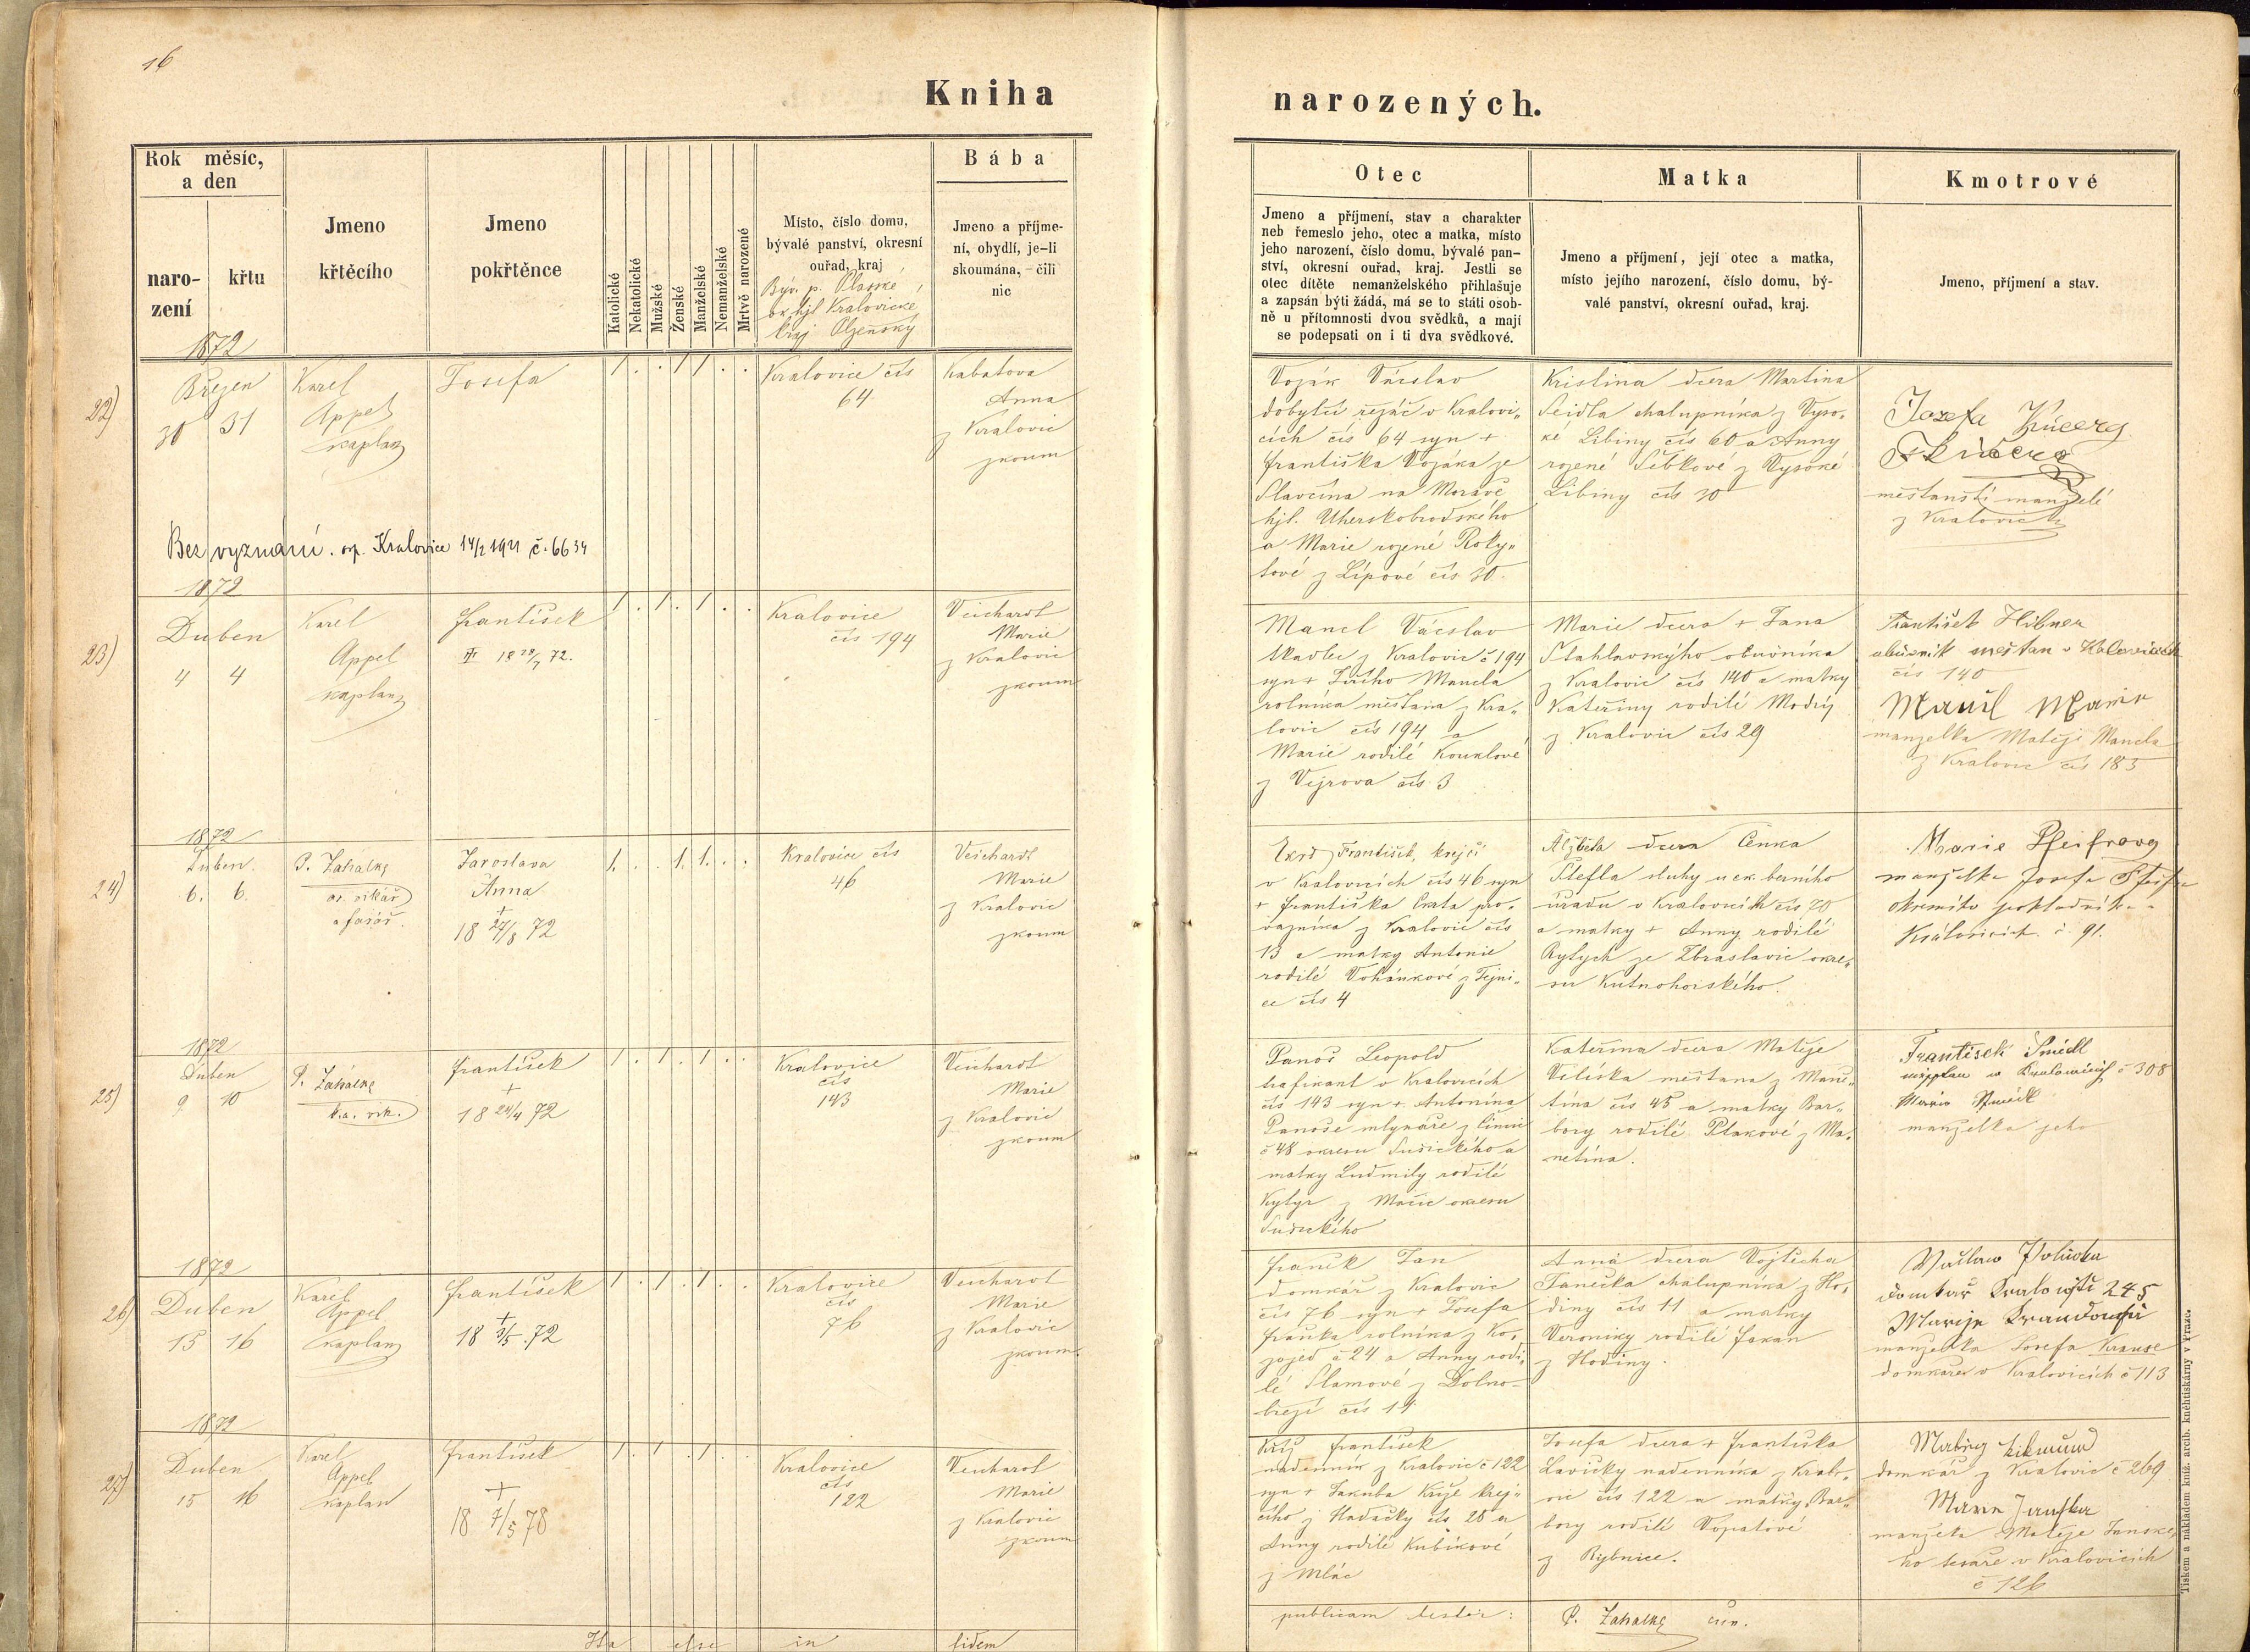 16
Kniha
narozených.
Rok měsíc,
a den
naro-
zení
křtu
Jmeno
křtěcího
Jmeno
pokřtěnce
Katolické
Nekatolické
Mužské
Ženské
Manželské
Nemanželské
Mrtvě narozené
Místo, číslo domu,
bývalé panství, okresní
ouřad, kraj
Býv. p. Plasské,
ok hjt Kralovické
kraj Plzeňský
Bába
Jmeno a příjme-
ní, obydlí, je-li
skoumána, - čili
nic
Otec
Jmeno a příjmení, stav a charakter
neb řemeslo jeho, otec a matka, místo
jeho narození, číslo domu, bývalé pan-
ství, okresní ouřad, kraj. Jestli se
otec dítěte nemanželského přihlašuje
a zapsán býti žádá, má se to státi osob-
ně u přítomnosti dvou svědků, a mají
se podepsati on i ti dva svědkové.
Matka
Jmeno a příjmení, její otec a matka,
místo jejího narození, číslo domu, bý-
valé panství, okresní ouřad, kraj.
Kmotrové
Jmeno, příjmení a stav.
1872
22)
Březen
30 31
Karel
Appel
kaplan
Josefa
1 . . 1 1 . .
Kralovice čís
64
Kabatova
Anna
z Kralovic
zkoum
Voják Václav
dobytčí řezáč v Kralovi„
cích čís 64 syn +
Františka Vojáka ze
Slavčína na Moravě
hjt. Uherskobrodského
a Marie rozené Roky„
tové z Lípové čís 30.
Kristina dcera Martina
Seidla chalupníka z Vyso„
ké Libiny čís 60 a Anny
rozené Šebkové z Vysoké
Libiny čís 30
Jozefa Kúcera
měštanští manželé
z Kralovic
Bez vyznání. osp. Kralovice 14/2 1921 č. 6634
1872
23)
Duben
4 4
Karel
Appel
kaplan
František
18 28/7 72.
1 . 1 . 1 . .
Kralovice
čís 194
Veichardt
Marie
z Kralovic
zkoum
Mancl Václav
tkadlec z Kralovic č 194
syn + Jiřího Mancla
rolníka měštana z Kra„
lovic čís 194 a
Marie rodilé Kouklové
z Vejrova čís 3
Marie dcera + Jana
Štahlavského obuvníka
z Kralovic čís 140 a matky
Kateřiny rodilé Modrý
z Kralovic čís 29
František Hibner
obuvník měštan v Kralovicích
čís 140
manželka Matěje Mancla
z Kralovic čís 183
1872
24)
Duben.
6. 6.
P. Zahálka
os. vikář
a farář.
Jaroslava
Anna
+
18 27/8 72
1. . . 1. 1. . .
Kralovice čís
46
Veichardt
Marie
z Kralovic
zkoum
František, krejčí
v Kralovicích čís 46 syn
+ Františka pro„
vazníka z Kralovic čís
13 a matky Antonie
rodilé Vohánkové z Tejni„
ce čís 4
Alžběta dcera Čeňka
Štefla sluhy u ck. berního
úřadu v Kralovicích čís 70
a matky + Anny rodilé
Rytych ze Zbraslavic okre„
su Kutnohorského.
Marie Pfeifrova
manželka Josefa
okresního pokladníka
Kralovicích č. 91.
1872
25)
Duben
9 10
P. Zahálka
František
+
18 24/4 72
1 . 1 . 1 . .
Kralovice
čís
143
Veichardt
Marie
z Kralovic
zkoum
Panoš Leopold
trafikant v Kralovicích
čís 143 syn + Antonína
Panoše mlynáře z
č 48 okresu Sušického a
matky Ludmily rodilé
Kytyr z Mačic okresu
Sušického
Kateřina dcera Matěje
Velíška měštana z Mane„
tína čís 45 a matky Bar„
bory rodilé Ptakové z Ma„
netína.
František Smédl
č 308
manželka jeho
1872
26)
Duben
15 16
Karel
Appel
kaplan
František
+
18 3/5 72
1 . 1 . 1 . .
Kralovice
čís
76
Veichardt
Marie
z Kralovic
zkoum.
Franěk Jan
domkář z Kralovic
čís 76 syn + Josefa
Fraňka rolníka z Ko„
zojed č 24 a Anny rodi„
lé Slamové z Dolno-
březí čís 14
Anna dcera Vojtěcha
Janečka chalupníka z Ho„
diny čís 11 a matky
Veroniky rodilé
z Hodiny.
domkař 245
manželka Josefa Krause
domkaře v Kralovicích č 113
1872
27)
Duben
15 16
Karel
Appel
kaplan
František
+
18 7/5 78
1 . 1 . 1 . .
Kralovice
čís
122
Veichardt
Marie
z Kralovic
zkoum
Kríž František
nádenník z Kralovic č 122
syn + Jakuba Kríže krej„
čího z Hadačky čís 28 a
Anny rodilé Kubíkové
z Mlác
Josefa dcera + Františka
Lavičky nadenníka z Kralo„
vic čís 122 a matky Bar„
bory rodilé Vopatové
z Rybnice.
domkář z Kralovic č 269
manželka Matěje Janske„
ho tesaře v Kralovicích
č 126
Ita esse in fidem
publicam testor:
P. Zahálka
Tiskem a nákladem kníž. arcib. knihtiskárny v Praze.